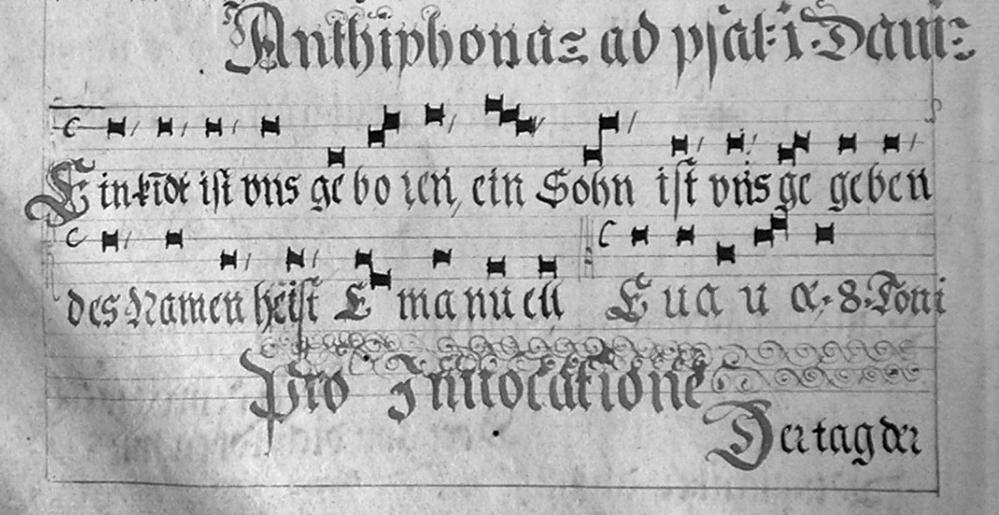 Anthiphona: ad psal: i Daui:
Ein kīdt ist vns ge bo ren, ein Sohn ist vns ge geben
des Namen heist E ma nu ell E u a u æ. 8. Toni
Pro Inuocatione
Der tag der